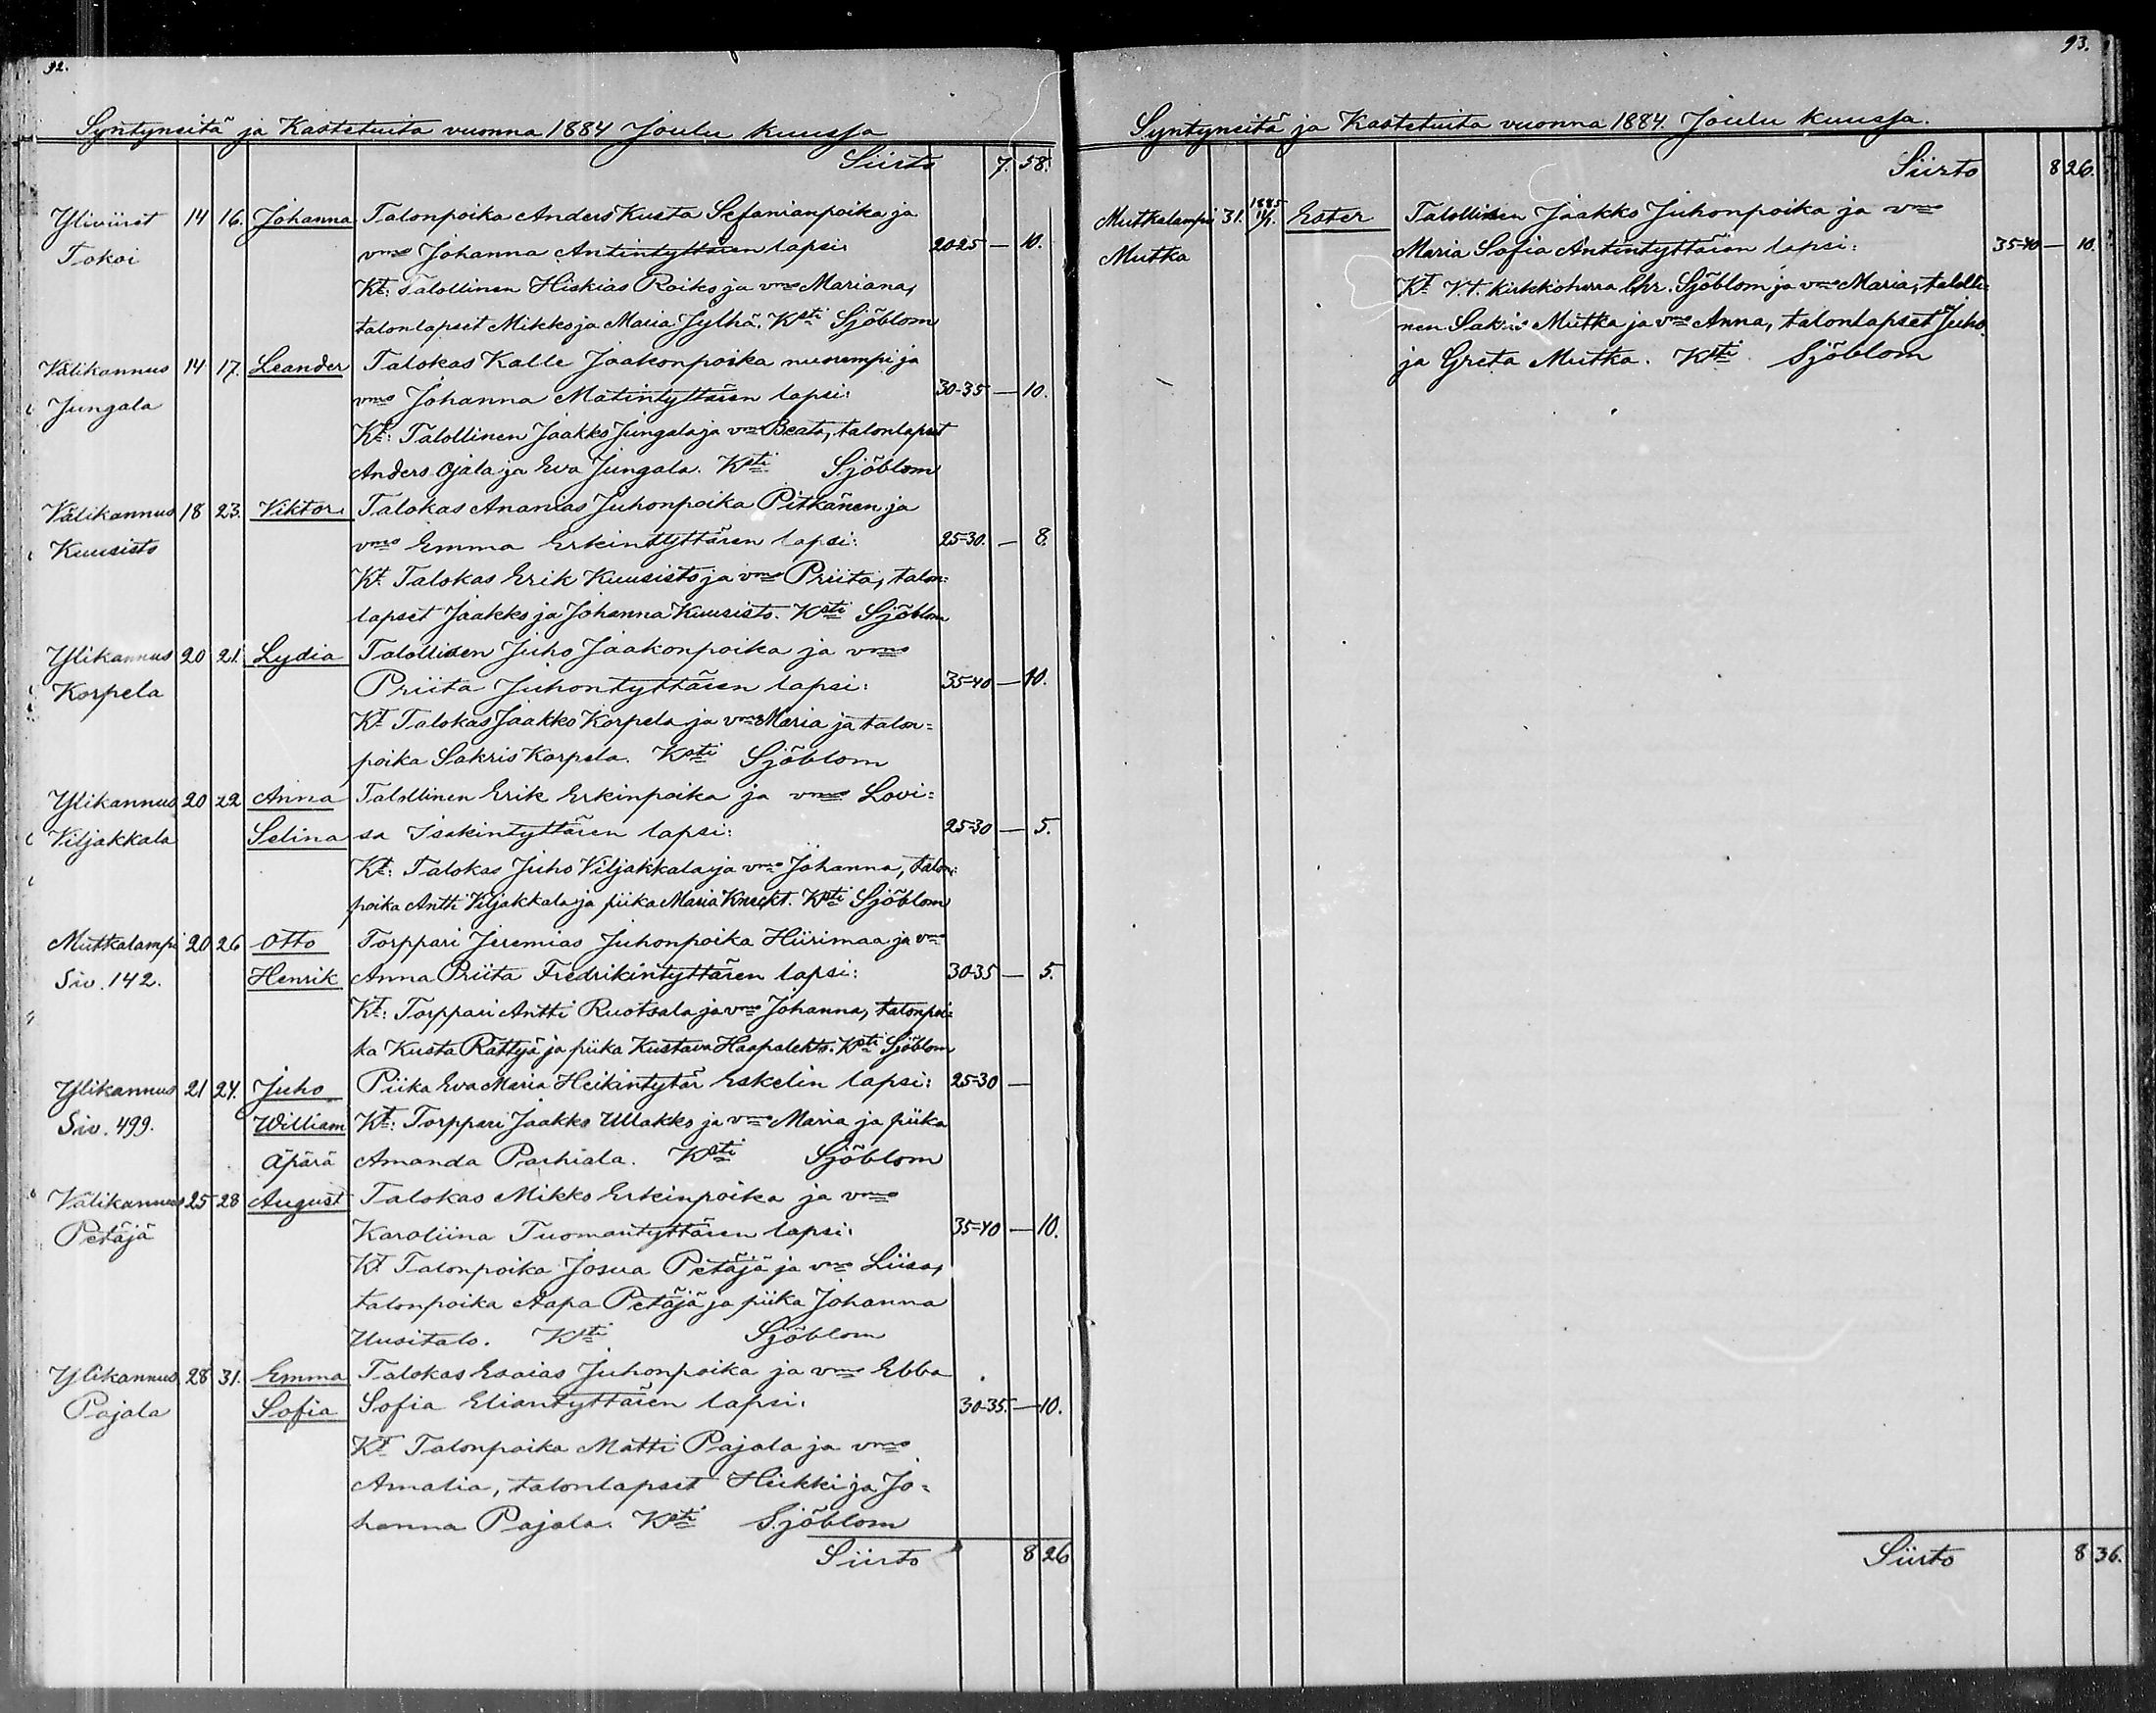 92.
Syntyneitä ja Kastetuita vuonna 1884 Joulu kuussa
Siirto 7. 58.
Yliviiret 14 16. Johanna Talonpoika Anders Kusta Sefanianpoika ja
Tokoi vmo Johanna Antintyttären lapsi: 20-25 — 10.
Kt: Talollinen Hiskias Roiko ja vmo Mariana,
talonlapset Mikko ja Maria Jylhä. Ksti Sjöblom
Välikannus 14 17. Leander Talokas Kalle Jaakonpoika nuorempi ja
Jungala vmo Johanna Matintyttären lapsi: 30-35 — 10.
Kt: Talollinen Jaakko Jungala ja vmo Beata, talonlapset
Anders Ojala ja Eva Jungala. Ksti Sjöblom
Välikannus 18 23. Viktor Talokas Ananias Juhonpoika Pitkänen ja
Kuusisto vmo Emma Erkintyttären lapsi: 25-30. — 8.
Kt Talokas Erik Kuusisto ja vmo Priita, talon=
lapset Jaakko ja Johanna Kuusisto. Ksti Sjöblom
Ylikannus 20 21. Lydia Talollinen Juho Jaakonpoika ja vmo
Korpela Priita Juhontyttären lapsi: 35-40 — 10.
Kt Talokas Jaakko Korpela ja vmo Maria ja talon=
poika Sakris Korpela. Ksti Sjöblom
Ylikannus 20 22 Anna Talollinen Erik Erkinpoika ja vmo Lovi=
Viljakkala Selina sa Isakintyttären lapsi: 25-30 — 5.
Kt: Talokas Juho Viljakkala ja vmo Johanna, talon=
poika Antti Viljakkala ja piika Maria Knecht. Ksti Sjöblom
Mutkalampi 20 26 Otto Torppari Jeremias Juhonpoika Hiirimaa ja vmo
Siv. 142. Henrik Anna Priita Fredrikintyttären lapsi: 30-35 — 5.
Kt: Torppari Antti Ruotsala ja vmo Johanna, talonpoi=
ka Kusta Rättyä ja piika Kustava Haapalehto. Ksti Sjöblom
Ylikannus 21 24. Juho Piika Eva Maria Heikintytär Eskelin lapsi: 25-30 —
Siv. 499. William Kt: Torppari Jaakko Ullakko ja vmo Maria ja piika
Äpärä Amanda Parhiala. Ksti Sjöblom
Välikannus 25 28 August Talokas Mikko Erkinpoika ja vmo
Petäjä Karoliina Tuomantyttären lapsi: 35-40 — 10.
Kt Talonpoika Josua Petäjä ja vmo Liisa,
talonpoika Aapa Petäjä ja piika Johanna
Uusitalo. Ksti Sjöblom
Ylikannus 28 31. Emma Talokas Esaias Juhonpoika ja vmo Ebba
Pajala Sofia Sofia Eliantyttären lapsi: 30-35. — 10.
Kt Talonpoika Matti Pajala ja vmo
Amalia, talonlapset Heikki ja Jo=
hanna Pajala. Ksti Sjöblom
Siirto 8 26
93.
Syntyneitä ja Kastetuita vuonna 1884. Joulu kuussa.
Siirto 8 26.
1885
Mutkalampi 31. Ester Talollinen Jaakko Juhonpoika ja vmo
Mutka Maria Sofia Antintyttären lapsi: 35-40 — 10.
Kt V.t. kirkkoherra Chr. Sjöblom ja vmo Maria, talolli=
nen Sakris Mutka ja vmo Anna, talonlapset Juho
ja Greta Mutka. Ksti Sjöblom
Siirto 8 36.